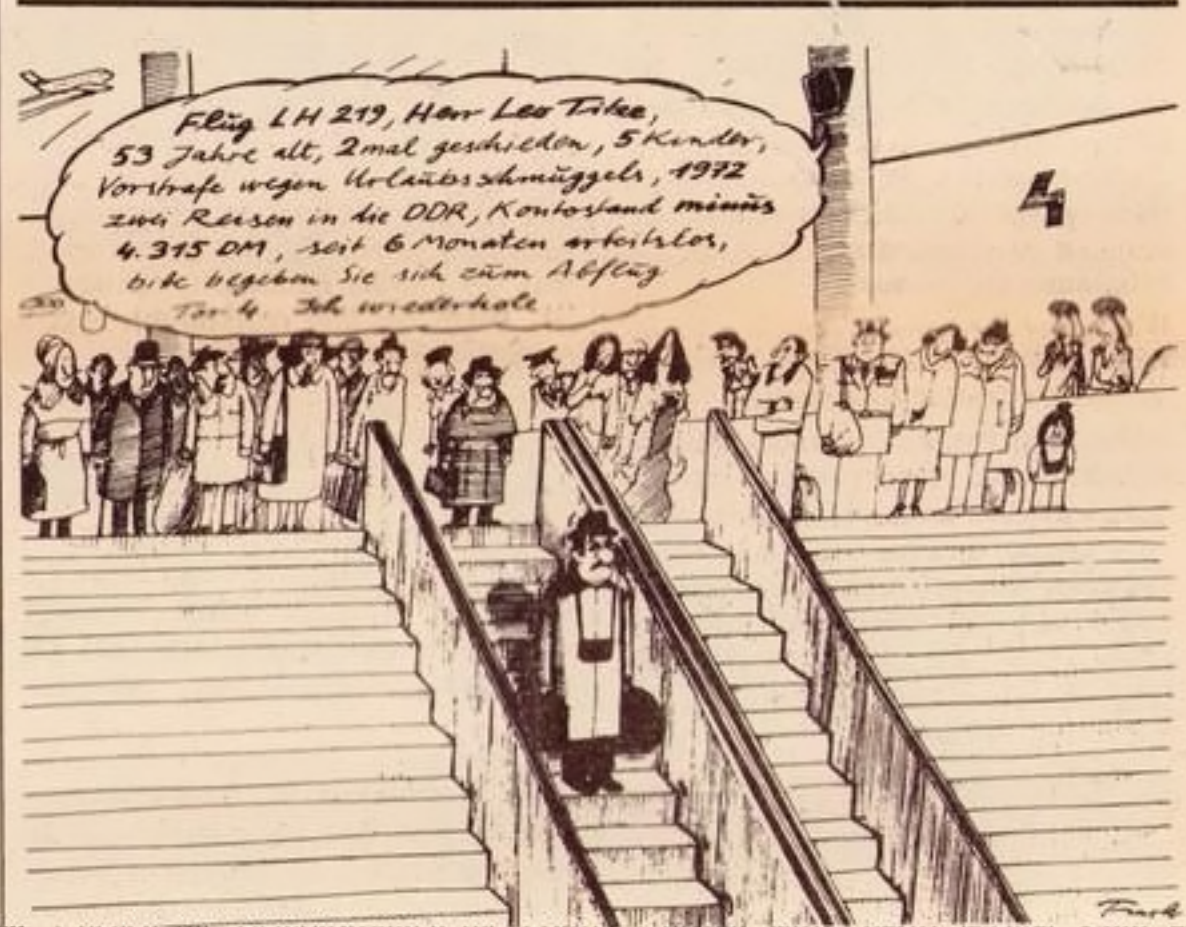 Flug LH 219, Herr Leo Titze,
53 Jahre alt, 2mal geschieden, 5 Kinder,
Vorstrafe wegen Urlaubsschmuggels, 1972
zwei Reisen in die DDR, Kontostand minus
4.315 DM, seit 6 Monaten arbeitslos,
bitte begeben Sie sich zum Abflug
Tor 4. Ich wiederhole...
4